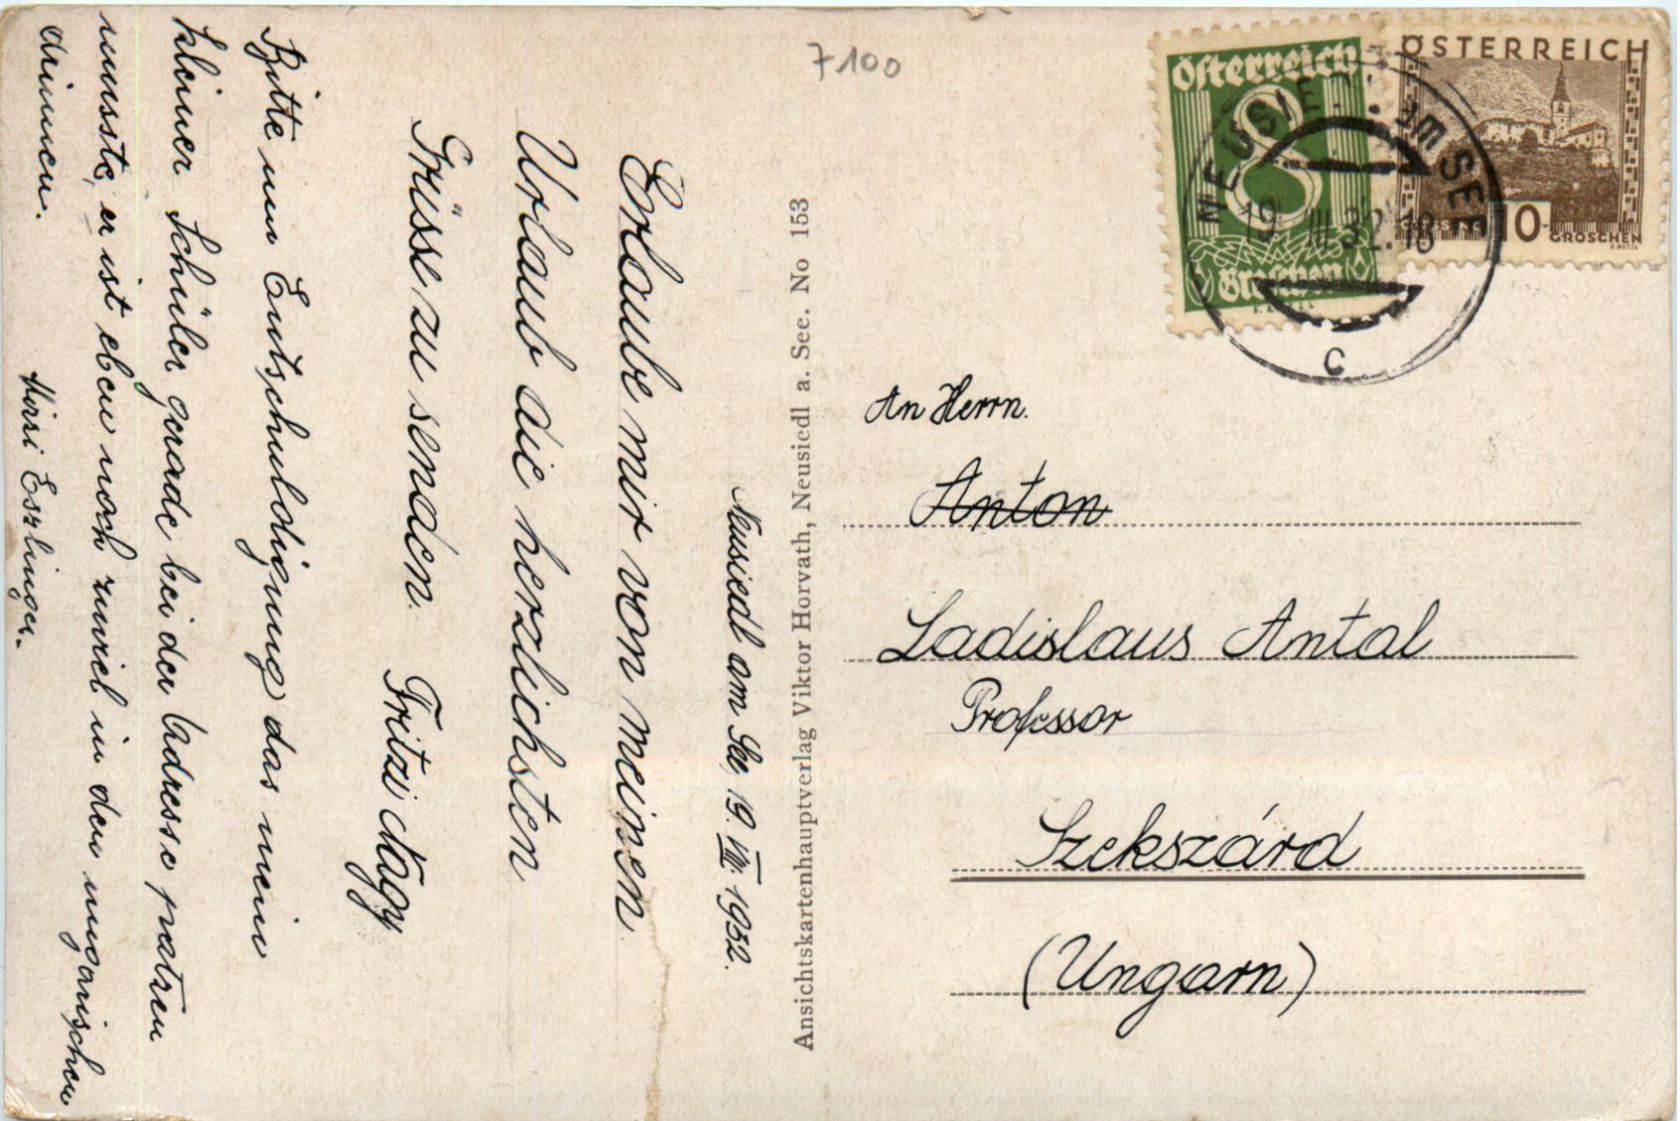 7100
Österreich
8
Groschen
ÖSTERREICH
GROSCHEN
NEUSIEDL am SEE
19. VIII. 32. 18
C
Neusiedl am See, 19. VIII. 1932.
Erlaube mir von meinen
Urlaub die herzlichsten
Grüsse zu senden.
Fritzi Nagy
Bitte um Entschuldigung das mein
kleiner Schüler gerade bei der Adresse patzen
musste, er ist eben noch zuviel in den ungarischen
drinnen.
Eszlinger.
Ansichtskartenhauptverlag Viktor Horvath, Neusiedl a. See. No 153
An Herrn.
Anton
Ladislaus Antal
Professor
Szekszárd
(Ungarn)